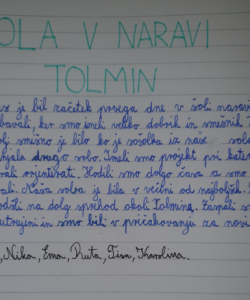 OLA V NARAVI
TOLMIN
es je bil začetek prvega dne v šoli narav
abavali, ker smo imeli veliko dobrih in smešnih
olj smešno je bilo ko je sošolka iz naše
njala drugo sobo. Imeli smo projekt pri kater
rali orientirati. Hodili smo dolgo časa a smo
ali. Naša soba je bila v večini od najboljših.
odili na dolg sprehod okoli Tolmina. Zaspali s
utrujeni in smo bili v pričakovanju za nasl
, Nika, Ema, Ruta, Tisa, Karolina.